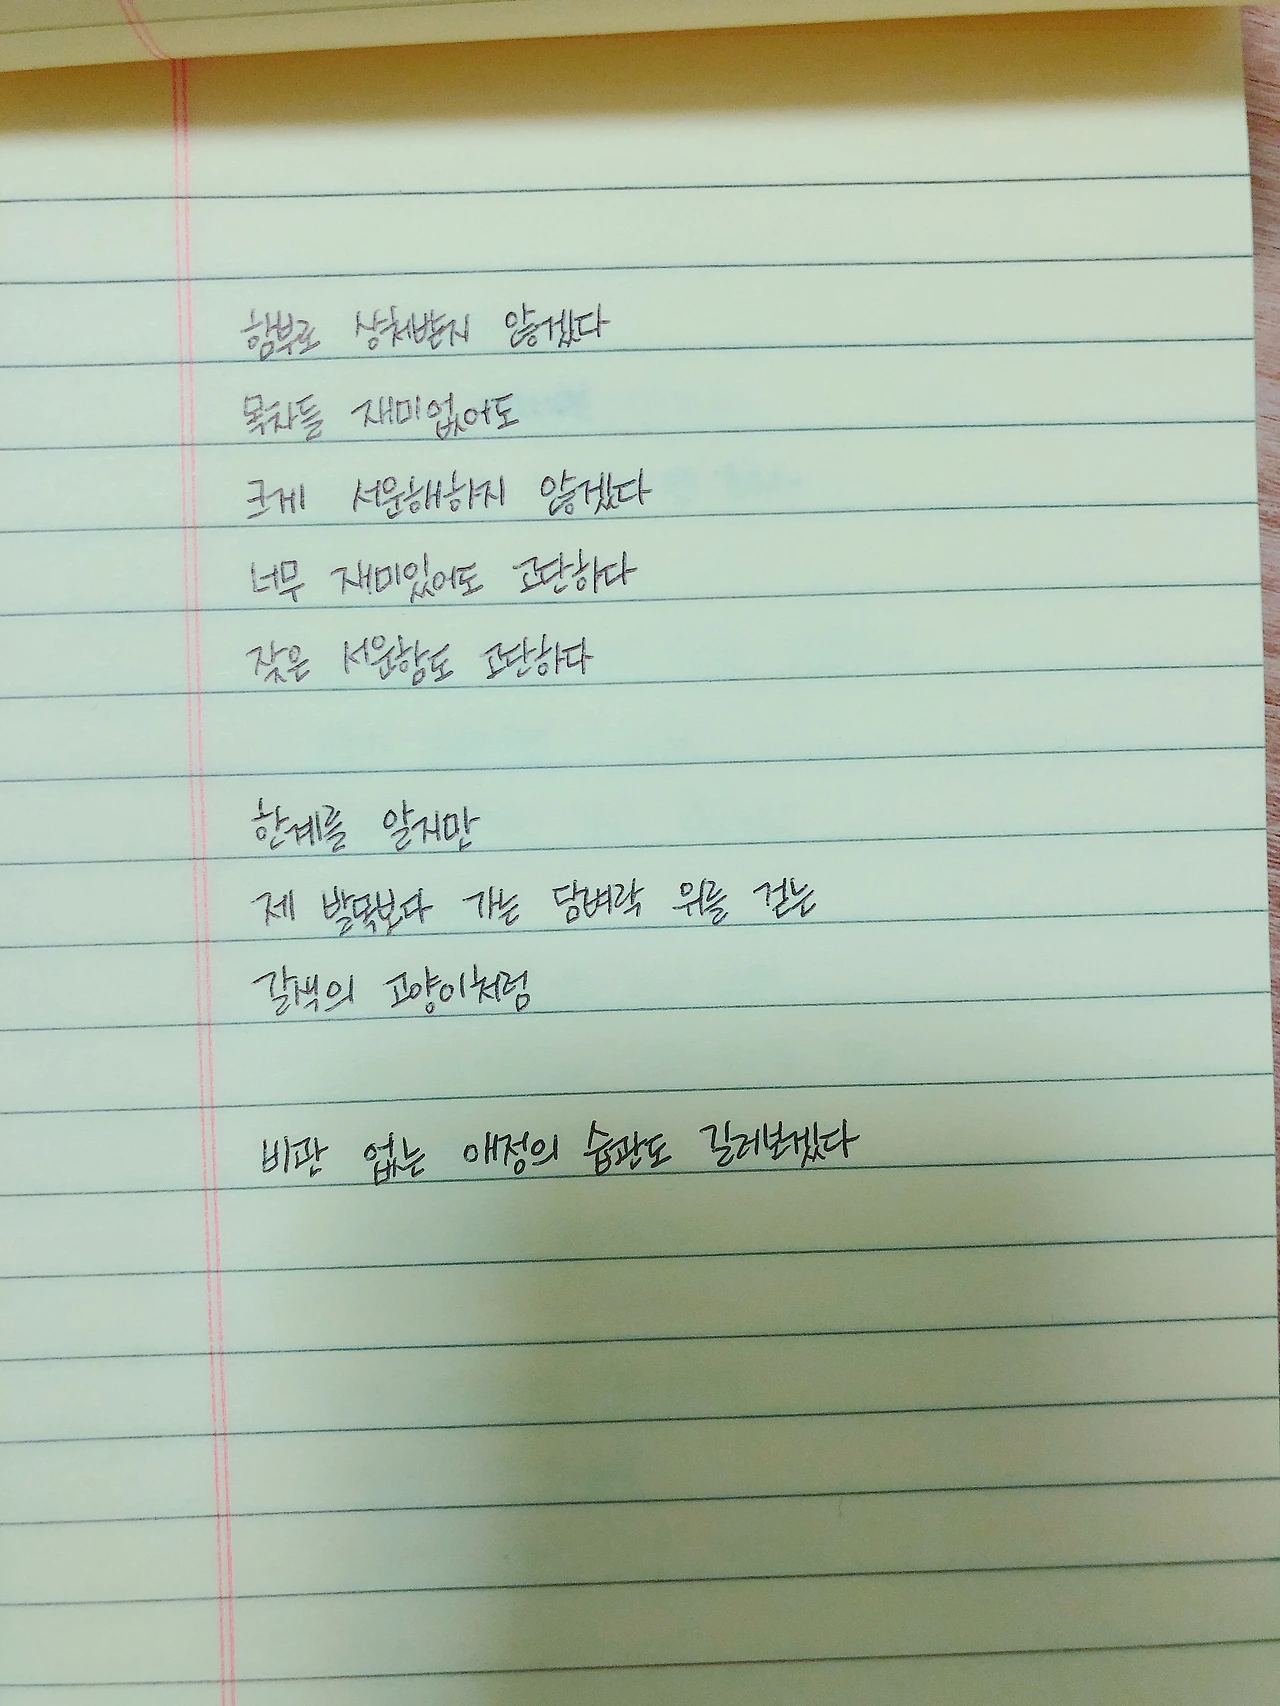 함부로 상처받지 않겠다
목차들 재미없어도
크게 서운해하지 않겠다
너무 재미있어도 고단하다
잦은 서운함도 고단하다
한계를 알지만
제 발목보다 가는 담벼락 위를 걷는
갈색의 고양이처럼
비관 없는 애정의 습관도 길러보겠다